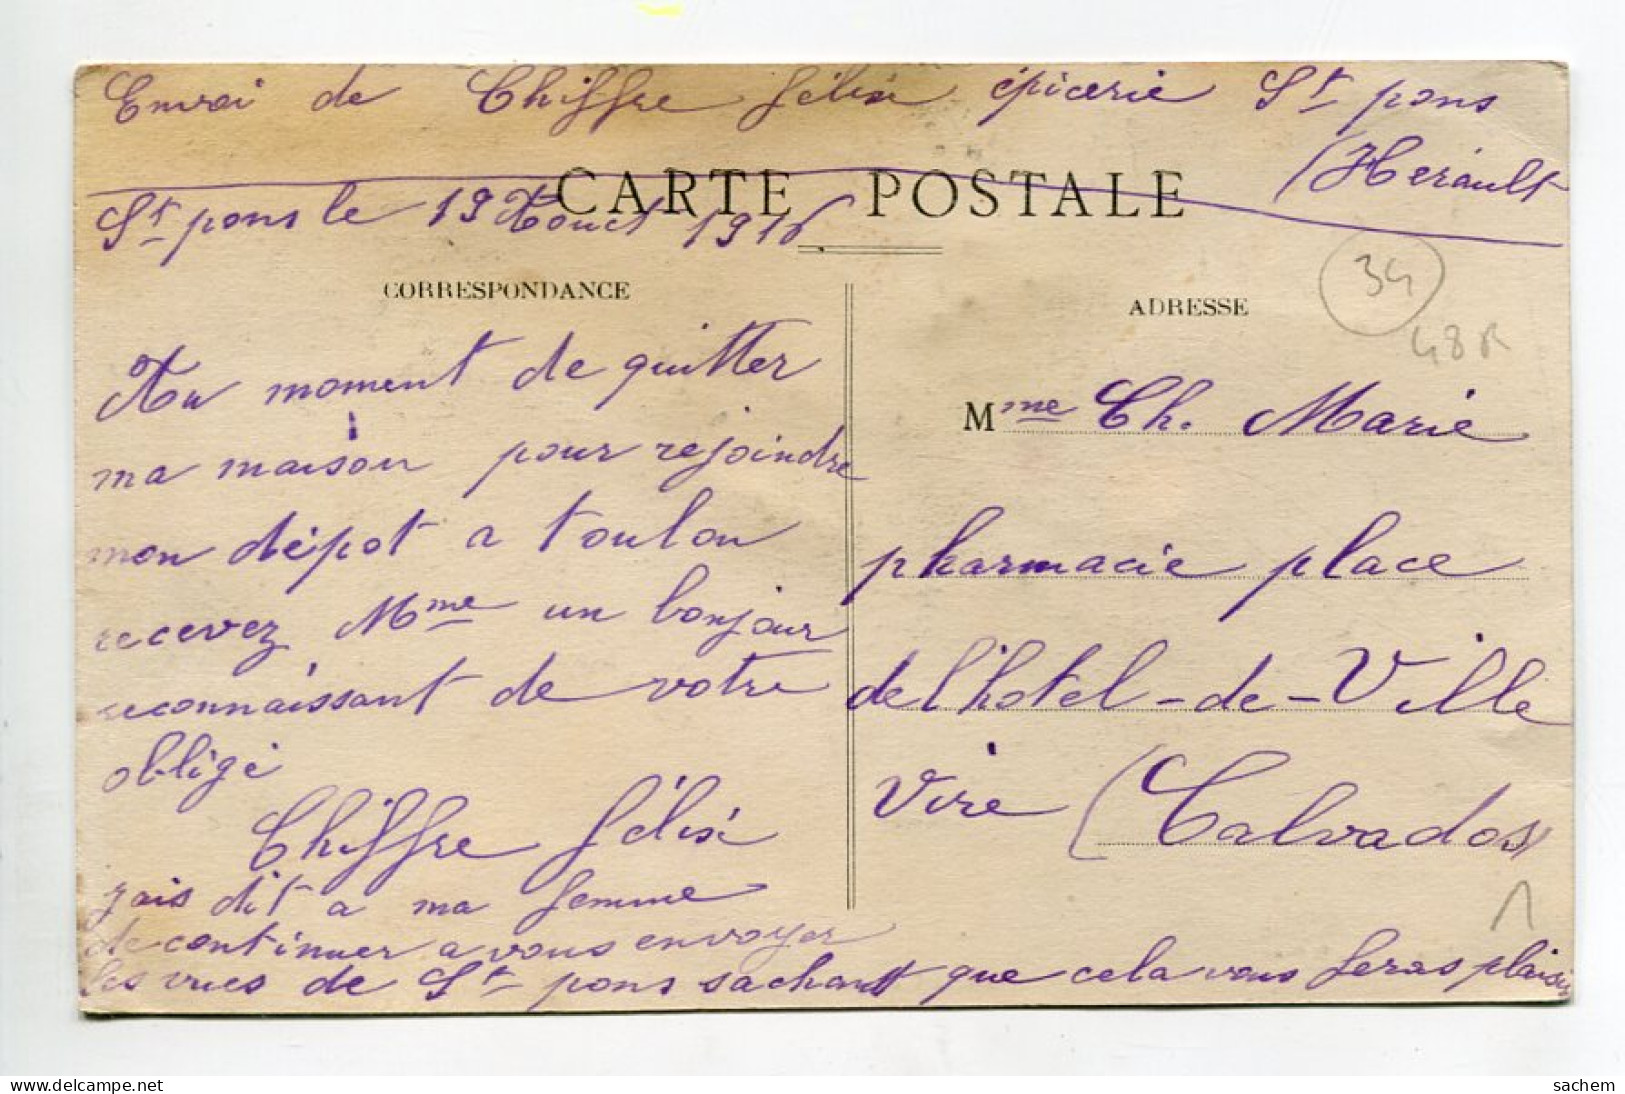 Envoi de Chiffre félix épicerie St pons
(Herault
CARTE POSTALE
St pons le 19 Aout 1916
CORRESPONDANCE
Au moment de quitter
ma maison pour rejoindre
mon dépot a toulon
recevez Mme un bonjour
reconnaissant de votre
obligé
Chiffre félix
jais dit a ma femme
de continuer a vous envoyer
les vues de St pons sachant que cela vous feras plaisir
ADRESSE
34
48R
Mme Ch. Marie
pharmacie place
de l'hotel-de-Ville
Vire (Calvados)
1
delcampe.net
sachem